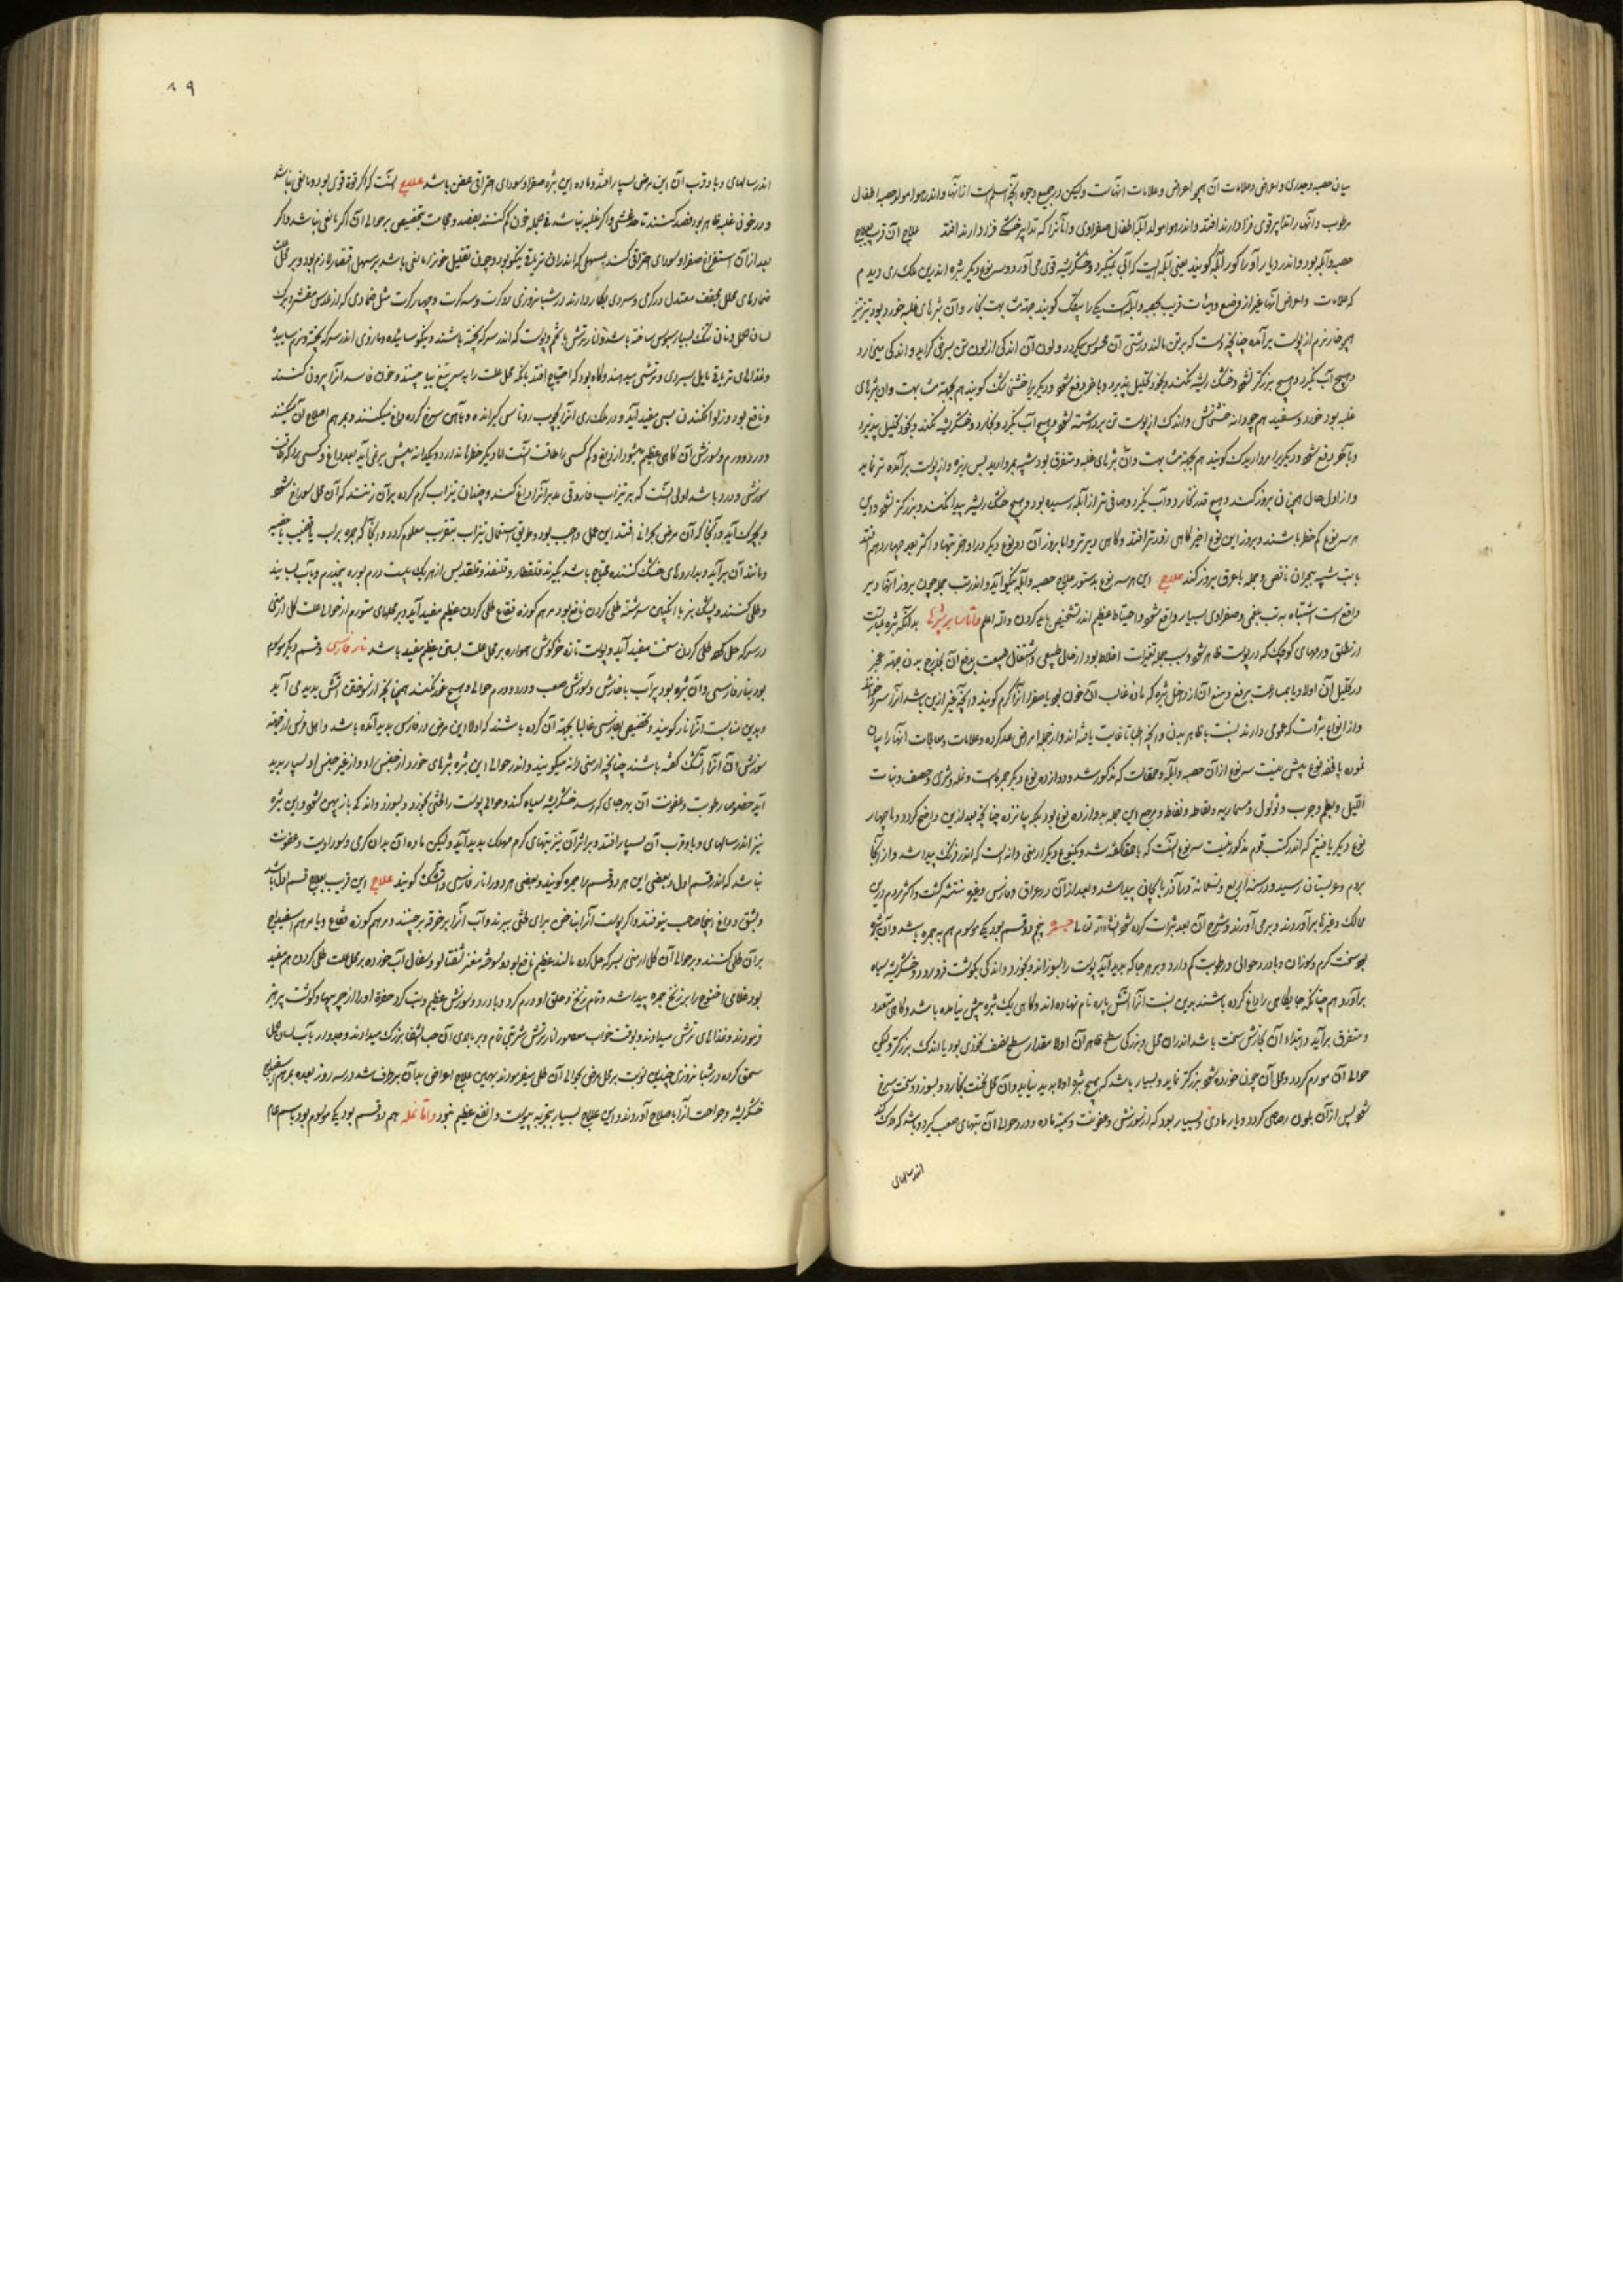 بیان حصبه و جدری و اعراض و علامات آن همچو اعراض و علامات آنهاست ولیکن در جمیع وجوه آنچه اسلم است از آنها و اندر هوا مولد حصبه اطفال
مرطوب و آنها را تدابیر قوی فرا دارند افتد و اندر هوا مولد آبله اطفال صفراوی و آنانرا که تدابیر خشک فرا دارند افتد علاج آن قرب بعلاج
حصبه و آبله بود و اندر دیار آور کور آبله گویند یعنی آبله ایست که آبی نمیگیرد و خشکریشه قوی می آورد و سه نوع دیگر بثره اندرین ملک ری دیدم
که علامات و اعراض آنها غیر از وضع و هیأت قریب بحصبه و آبله است یکی را گویند جهت مشابهت بکار و آن بثرهای غلبه خورد بود تیز تیز
همچو خار نرم از پوست برآمده چنانچه دست که بر تن مالند درشتی آن محسوس میگردد و لون آن اندکی از لون تن بسرخی گراید و اندکی میخارد
و هیچ آب نگیرد و هیچ بزرگتر نشود و خشک ریشه نکند و بخود تحلیل پذیرد و بآخر دفع شود و دیگریرا خشخاشک گویند هم بجهت مشابهت و آن بثرهای
غلبه بود خورد و سفید هم چو دانه خشخاش و اندک از پوست تن برداشته شود و هیچ آب نگیرد و بخارد و خشکریشه نکند و بخود تحلیل پذیرد
و بآخر دفع شود و دیگریرا مرواریدک گویند هم بجهت مشابهت و آن بثرهای غلبه و متفرق بود شبیه بمروارید بس ریزه و از پوست برآمده تر نماید
و از اول حال همچنان بروز کند و هیچ قدر نخارد و آب نگیرد و صافی تر از آبله رسیده بود و هیچ خشک ریشه پیدا نکند و بزرگتر نشود و این
هر سه نوع کم خطر باشند و بروز این نوع اخیر گاهی زودتر افتد و گاهی دیرتر و اما بروز آن دو نوع دیگر در اواخر تبها و اکثر بعد چهاردهم افتد
با تب شبیه بحران ناقص و جمله با عرق بروز کند علاج این هر سه نوع بدستور علاج حصبه و آبله نیکو آید و اندر تب جمله چون بروز آنها دیر
واقع است اشتباه به تب بلغمی و صفراوی بسیار واقع شود و احتیاط عظیم اندر تشخیص باید کردن والله اعلم بدانکه بثره عبارت
از مطلق ورمهای کوچک که در پوست ظاهر شود و سبب جمله تغیرات اخلاط بود از حال طبیعی و اشتغال طبیعت بدفع آن بخارج بدن جهت عجز
در تحلیل آن اولا و یا بمسارعت بر دفع
و از انواع بثرات که عمومی دارند نسبت با ظاهر بدن و آنچه اطبا تا غایت یافته اند و از جمله امراض عد کرده و علامات و معالجات آنها را بیان
نموده پانزده نوع بیش نیست سه نوع از آن حصبه و آبله و حمیقا است که مذکور شد و دوازده نوع دیگر جمره است و نمله و شری و حصف و نبات
اللیل و بطم و جرب و ثؤلول و مسماریه و نفاطه و نقاط و مرجع این جمله بدوازده نوع بود بلکه پانزده چنانچه بعد ازین واضح گردد و ما چهار
نوع دیگر یافتیم که اندر کتب قوم مذکور نیست سه نوع آنست که با حمیقا گفته شد و یکنوع دیگر ارمنی دانه است که اندر فرنگ پیدا شد و از آنجا
بروم و عربستان رسید و در سنه اربع و تسعمائة در آذربایجان پیدا شد و بعد از آن در عراق و فارس و غیره منتشر گشت و اکثر مردم درین
ممالک و غیرها برآوردند و برمی آورند و شرح آن بعد بثرات کرده شود انشاءالله تعالی جمره پنجم دو قسم بود یکی موسوم هم به جمره باشد و آن بثره
بود سخت گرم و سوزان و بادرد حوالی و رطوبت کم دارد و بهر جا که پدید آید پوست را بسوزاند و بخورد و اندکی بگوشت فرو رود و خشکریشه سیاه
برآورد هم چنانکه جایگاهی را داغ کرده باشند بدین نسبت آنرا آتش پاره نام نهاده اند و گاهی یک بثره بیش نیامده باشد و گاهی متعدد
و متفرق برآید و ابتداء آن بخارش سخت باشد اندران محل و بزرگی سطح ظاهر آن اولا مقدار سطح نصف نخودی بود یا اندک بزرگتر و
حوالی آن مورم گردد و محل آن چون خورده شود بزرگتر نماید و بسیار باشد که هیچ بثره اولا پدید نیاید و آن محل نخست بخارد و بسوزد و سخت سرخ
شود پس از آن بلون رصاصی گردد و یا رمادی و بسیار بود که از سوزش و عفونت و سمیت ماده و درد حوالی آن تبهای صعب گیرد و باشد که هلاک کند
اندر سالهای
۸۹
اندر سالهای وبا و قرب آن این مرض بسیار افتد و ماده این بثره صفرا و سودای احتراقی عفن باشد علاج آنست که اگر قوه قوی بود و مانعی نباشد
و در خون غلبه ظاهر بود فصد کنند تا حد غشی و اگر غلبه نباشد فی الجمله خون کم کنند بفصد و حجامت بتخصیص بر حوالی آن اگر مانعی نباشد و اگر
بعد از آن استفراغ صفرا و سودای احتراقی کنند بمسهلی که اندران تریاقیة نیکو بود و چون تقلیل خون را مانعی باشد بر مسهل اقتصار لازم بود و بر محل علت
ضمادهای محلل مجفف معتدل در گرمی و سردی بکار دارند در شبانروزی دو کرت و سه کرت و چهار کرت مثل ضمادی که از عدس مقشر و برگ
لسان الحمل و نان تنک بسیار سبوس ساخته باشد و انار ترش با تخم و پوست که اندر سرکه پخته باشند و نیکو سائیده و مازوی اندر سرکه پخته و نرم سائیده
و غذاهای تریاقی مایل بسردی و ترشی میدهند و گاه بود که احتیاج افتد بآنکه محل علت را به سر تیغ بیاجنند و خون فاسد آنرا بیرون کنند
و نافع بود و زلو افکندن بسی مفید آید و در ملک ری آنرا بچوب روناسی گیرانده و بآهن سرخ کرده داغ میکنند و بمرهم اصلاح آن میکنند
و درد و ورم و سوزش آن گاهی عظیم میشود از داغ و کم کسی را طاقت آنست اما دیگر خطر ندارد و یکدانه بیش برنمی آید بعد داغ و کسی را که طاقت
سوزش و درد باشد اولی آنست که به تیزاب فاروقی مدبر آنرا داغ کنند و چندان تیزاب گرم کرده بر آن زنند که آن محل سوراخ شود
و بچرک آید و آنجا که آن مرض بحرانی افتد این عمل واجب بود و طریق استعمال تیزاب عنقریب معلوم گردد و آنجا که جمره بر لب یا قضیب یا خصیه
و مانند آن برآید و بداروهای خشک کننده محتاج باشد بگیرند قلقطار و قلقند و قلقدیس از هر یک بیست درم بوره پنجدرم و بآب بسایند
و طلی کنند و پشک بز با انگبین سرشته طلی کردن نافع بود مرهم کوزه فقاع طلی کردن عظیم مفید آید و بر محلهای متورم از حوالی علت گل ارمنی
در سرکه حل کرده طلی کردن سخت مفید آید و پوست تازه خرگوش همواره بر محل علت بستن عظیم مفید باشد نار فارسی و قسم دیگر موسوم
بود بنار فارسی و آن بثره بود پرآب با خارش و سوزش صعب و درد و ورم حوالی و هیچ غور نکند همچنانچه از سوختن آتش پدید می آید
و بدین مناسبت آنرا نار گویند و تخصیص بفارسی غالبا بجهت آن کرده باشند که اولا این مرض در فارس پدید آمده باشد و اهل فرس از جهت
سوزش آن آنرا آتشک گفته باشند چنانچه ارمنی دانه میگویند و اندر حوالی این بثره بثرهای خورد از جنس او و از غیر جنس او بسیار پدید
آید خصوص رطوبت و عفونت آن بهر جای که رسد خشکریشه سیاه کند و حوالی پوست را بخورد و بسوزد و اندک باز پهن شود و این بثره
نیز اندر سالهای وبا و قرب آن بسیار افتد و بر اثر آن نیز تبهای گرم مهلک پدید آید ولیکن ماده آن بدان گرمی و سوداویت و عفونت
نباشد که اندر قسم اول و بعضی این هر دو قسم را جمره گویند و بعضی هر دو را نار فارسی و آتشک گویند علاج این قریب بعلاج قسم اول باشد
و بشق و داغ اینجا صاحب نیوفتند و اگر پوست آنرا بناخن برای ببرند و آب آنرا بر خرقه برچینند و مرهم کوزه فقاع و یا مرهم اسفیداج
بر آن طلی کنند و بر حوالی آن گل ارمنی بسرکه حل کرده مالند عظیم نافع بود و سوخته مغز شفتالو و سفال آب خورده بر محل علت طلی کردن هم مفید
بود غلامی را بر زنخ جمره پیدا شد و تمام زنخ و حلق او ورم کرد و با درد و سوزش عظیم و تب کرد حضرة او را از چربیها و گوشت پرهیز
فرمودند و غذاهای ترش میدادند و بوقت خواب معصور انار ترش شربتی تمام و بر بالای آن حب الشفا بزرگ میدادند و جدوار بآب لسان الحمل
سحق کرده در شبانروزی چندین نوبت بر محل مرض بحوالی آن طلی میفرمودند بدین علاج اعراض بد آن برطرف شد در سه روز بعده بمرهم سفیداج
خشکریشه و جراحت آنرا باصلاح آوردند و این علاج بسیار بتجربه پیوست و انفع عظیم نمود و اما نمله هم دو قسم بود یکی موسوم بود باسم عام